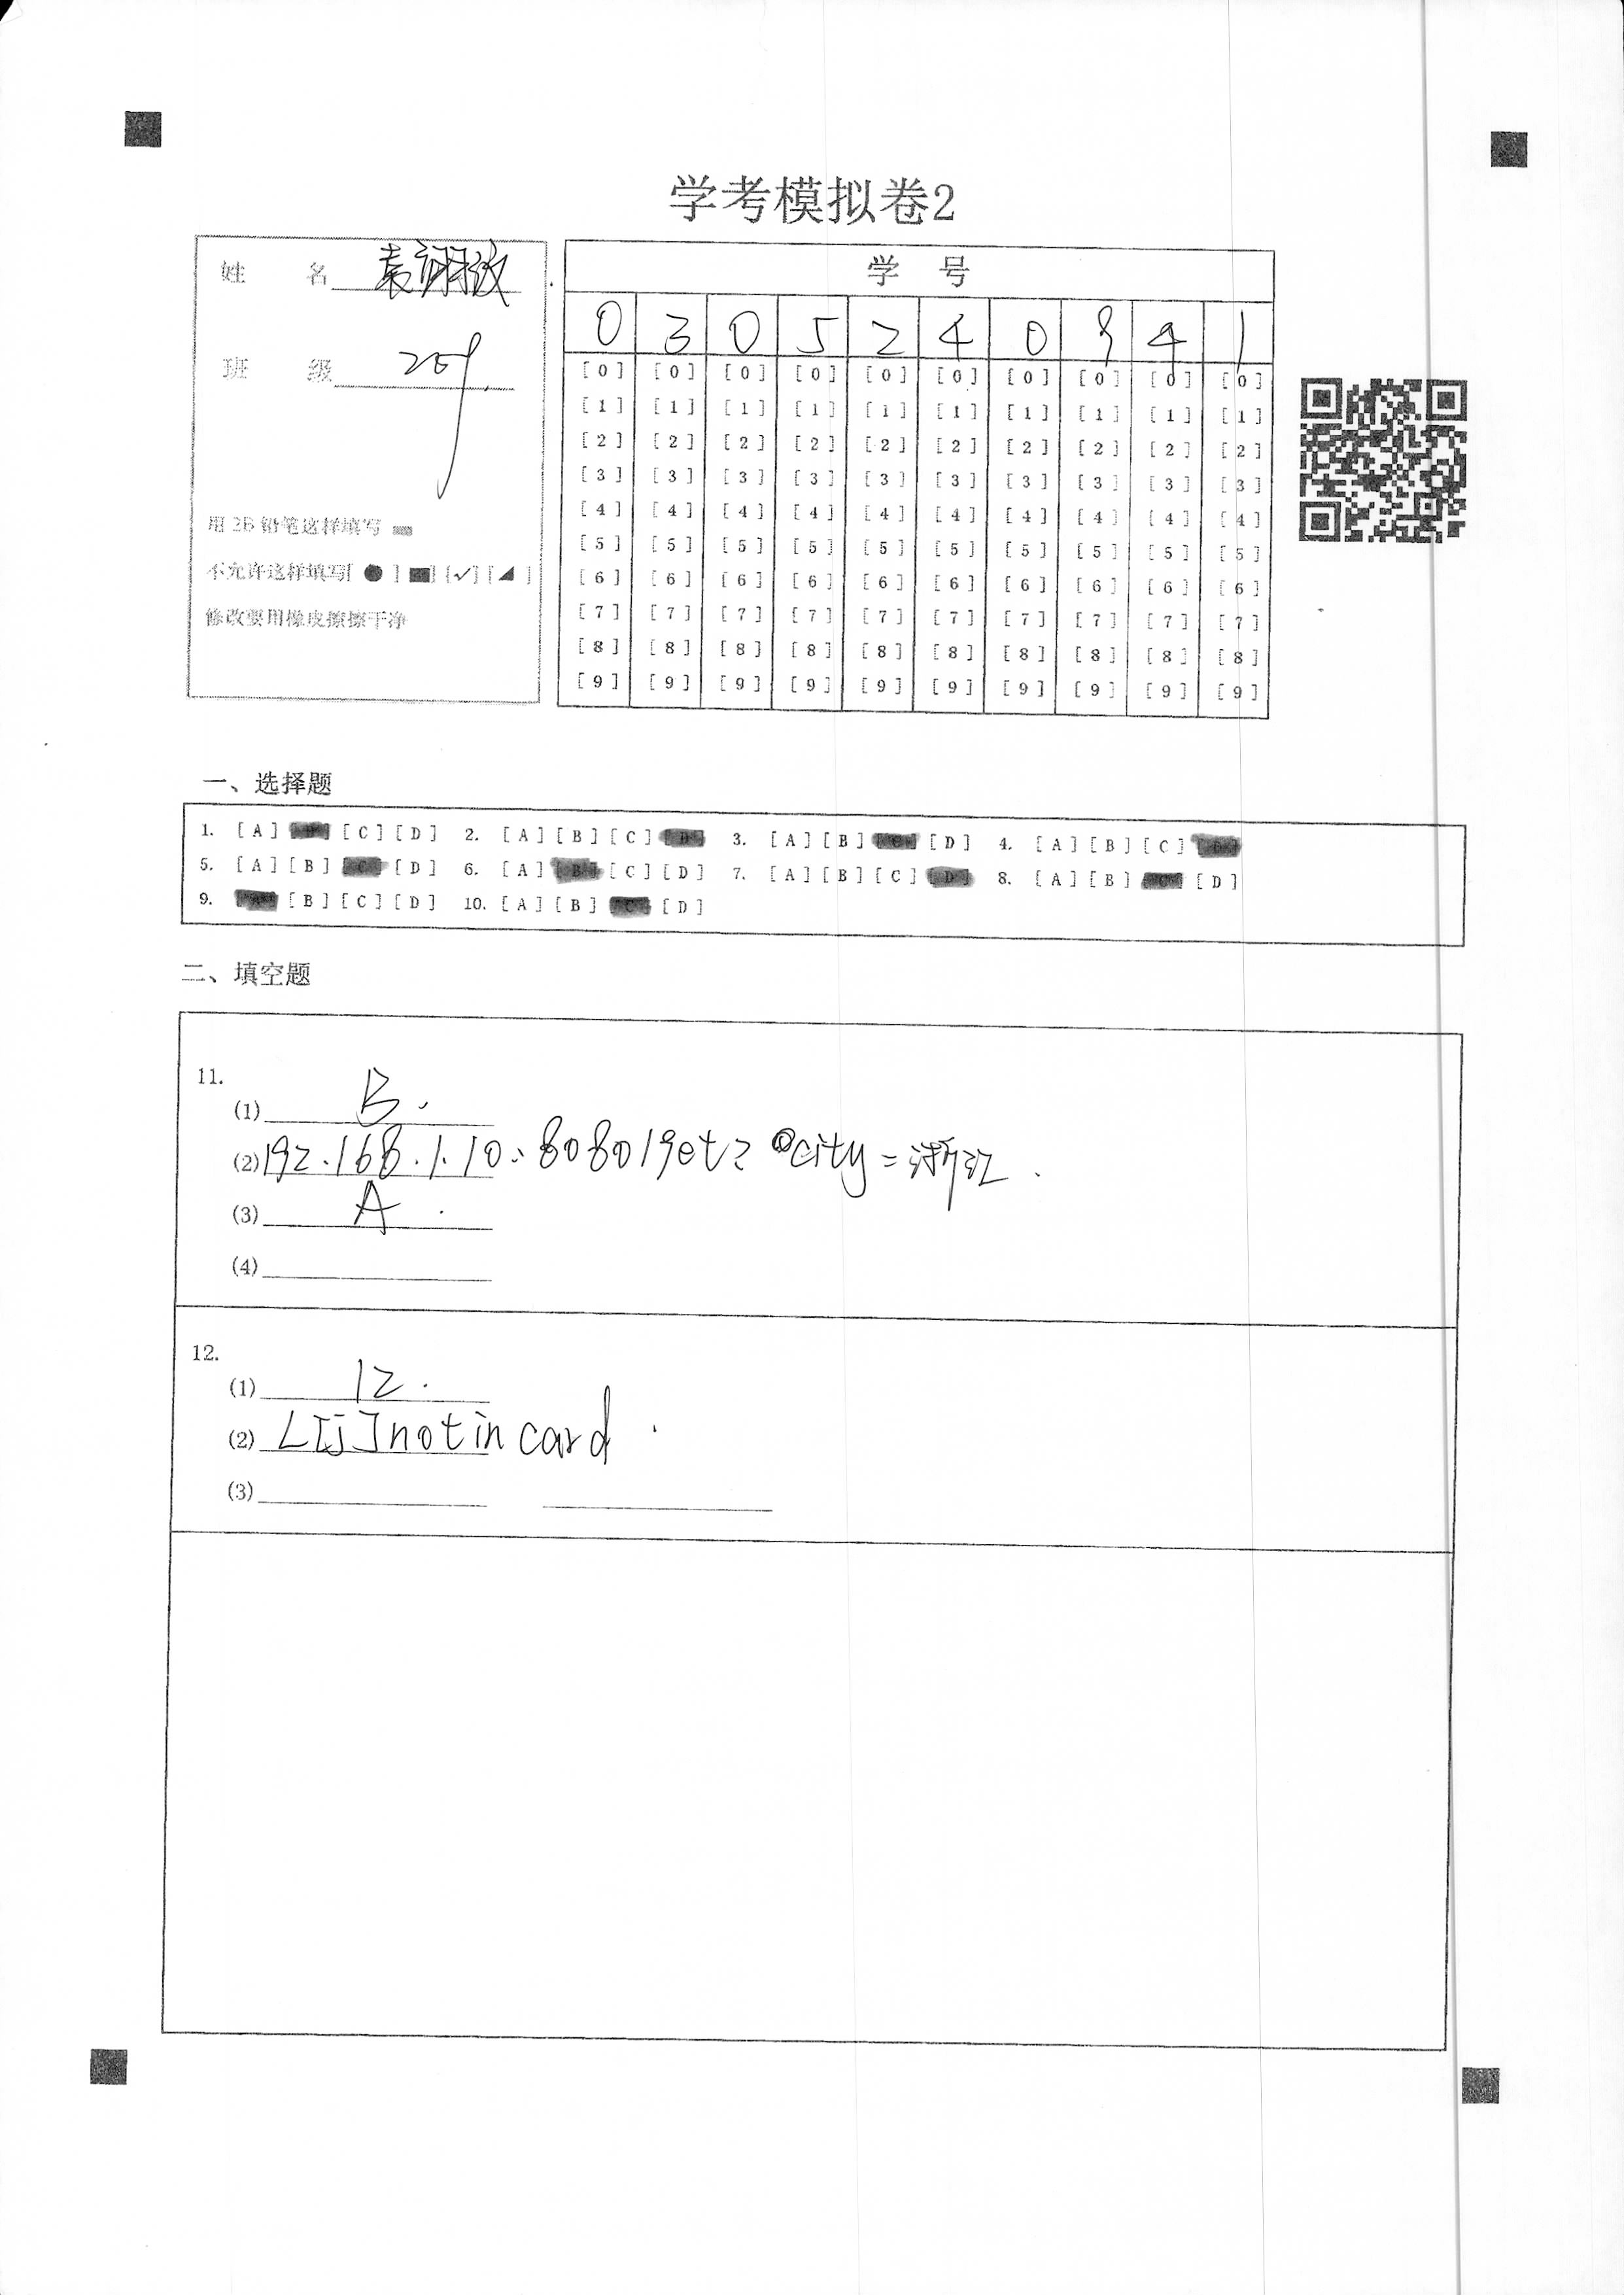 学考模拟卷2
姓 名
班 级 209
用 2B 铅笔这样填写
不允许这样填写[ ● ] [■] [✓] [◢ ]
修改要用橡皮擦擦干净
学 号
0 3 0 5 2 4 0 9 4 1
[0] [0] [0] [0] [0] [0] [0] [0] [0] [0]
[1] [1] [1] [1] [1] [1] [1] [1] [1] [1]
[2] [2] [2] [2] [2] [2] [2] [2] [2] [2]
[3] [3] [3] [3] [3] [3] [3] [3] [3] [3]
[4] [4] [4] [4] [4] [4] [4] [4] [4] [4]
[5] [5] [5] [5] [5] [5] [5] [5] [5] [5]
[6] [6] [6] [6] [6] [6] [6] [6] [6] [6]
[7] [7] [7] [7] [7] [7] [7] [7] [7] [7]
[8] [8] [8] [8] [8] [8] [8] [8] [8] [8]
[9] [9] [9] [9] [9] [9] [9] [9] [9] [9]
一、选择题
1. [A] [B] [C] [D] 2. [A] [B] [C] [D] 3. [A] [B] [C] [D] 4. [A] [B] [C] [D]
5. [A] [B] [C] [D] 6. [A] [B] [C] [D] 7. [A] [B] [C] [D] 8. [A] [B] [C] [D]
9. [A] [B] [C] [D] 10. [A] [B] [C] [D]
二、填空题
11.
(1) B.
(2) 192.168.1.10:8080/get? city=浙江
(3) A
(4)
12.
(1) 12.
(2) L[j] not in card
(3)